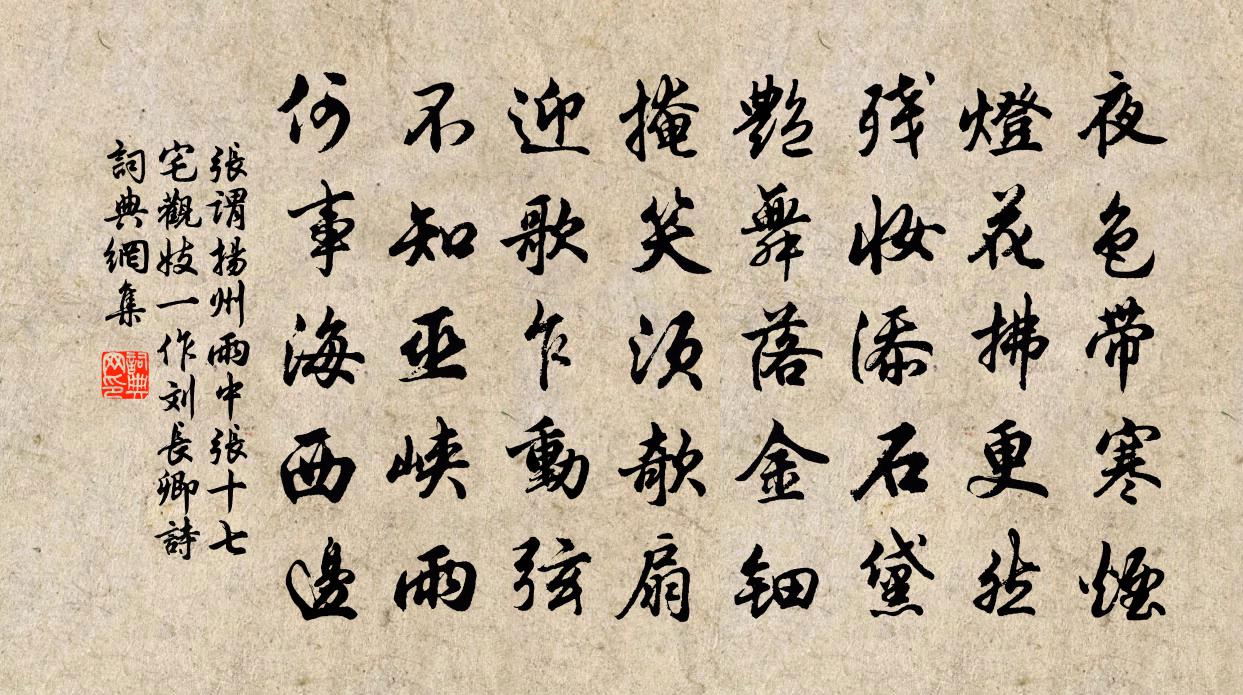 夜色帶寒煙
燈花拂更然
残妝添石黛
艷舞落金鈿
掩笑須欹扇
迎歌乍動弦
不知巫峽雨
何事海西邊
張謂揚州雨中張十七
宅觀妓一作刘長卿詩
詞典網集
詞典
网印